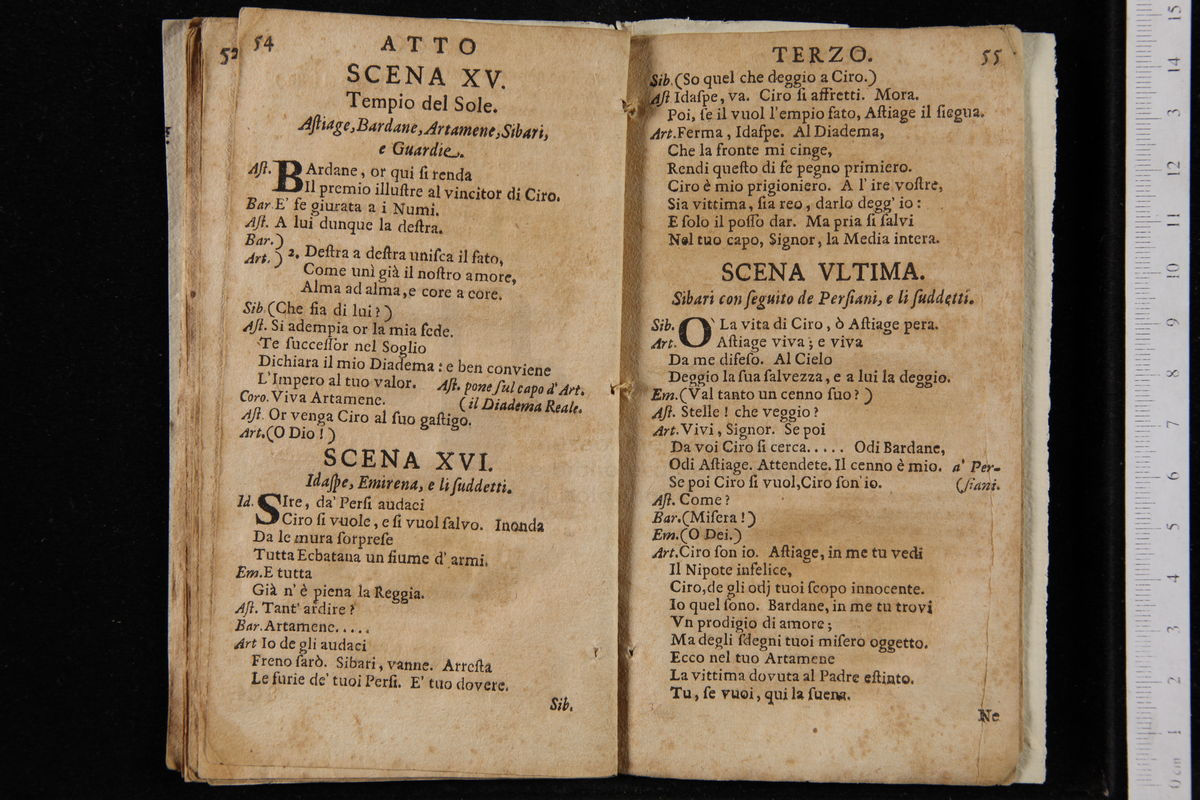 52
54
ATTO
SCENA XV.
Tempio del Sole.
Aſtiage, Bardane, Artamene, Sibari,
e Guardie.
Aſt. BArdane, or qui ſi renda
Il premio illuſtre al vincitor di Ciro.
Bar. E' fe giurata a i Numi.
Aſt. A lui dunque la deſtra.
Bar.)
Art.) 2. Deſtra a deſtra uniſca il fato,
Come unì già il noſtro amore,
Alma ad alma, e core a core.
Sib. (Che ſia di lui?)
Aſt. Si adempia or la mia fede.
Te ſucceſſor nel Soglio
Dichiara il mio Diadema: e ben conviene
L'Impero al tuo valor. Aſt. pone ſul capo d'Art.
Coro. Viva Artamene. (il Diadema Reale.
Aſt. Or venga Ciro al ſuo gaſtigo.
Art. (O Dio!)
SCENA XVI.
Idaſpe, Emirena, e li ſuddetti.
Id. SIre, da' Perſi audaci
Ciro ſi vuole, e ſi vuol ſalvo. Inonda
Da le mura ſorpreſe
Tutta Ecbatana un fiume d'armi.
Em. E tutta
Già n'è piena la Reggia.
Aſt. Tant' ardire?
Bar. Artamene.....
Art Io de gli audaci
Freno ſarò. Sibari, vanne. Arreſta
Le furie de' tuoi Perſi. E' tuo dovere.
Sib.
TERZO.
55
Sib. (So quel che deggio a Ciro.)
Aſt Idaſpe, va. Ciro ſi affretti. Mora.
Poi, ſe il vuol l'empio fato, Aſtiage il ſiegua.
Art. Ferma, Idaſpe. Al Diadema,
Che la fronte mi cinge,
Rendi queſto di fe pegno primiero.
Ciro è mio prigioniero. A l' ire voſtre,
Sia vittima, ſia reo, darlo degg' io:
E ſolo il poſſo dar. Ma pria ſi ſalvi
Nel tuo capo, Signor, la Media intera.
SCENA VLTIMA.
Sibari con ſeguito de Perſiani, e li ſuddetti.
Sib. O' La vita di Ciro, ò Aſtiage pera.
Art. Aſtiage viva; e viva
Da me difeſo. Al Cielo
Deggio la ſua ſalvezza, e a lui la deggio.
Em. (Val tanto un cenno ſuo?)
Aſt. Stelle! che veggio?
Art. Vivi, Signor. Se poi
Da voi Ciro ſi cerca..... Odi Bardane,
Odi Aſtiage. Attendete. Il cenno è mio. a' Per-
Se poi Ciro ſi vuol, Ciro ſon' io. (ſiani.
Aſt. Come?
Bar. (Miſera!)
Em. (O Dei.)
Art. Ciro ſon io. Aſtiage, in me tu vedi
Il Nipote infelice,
Ciro, de gli odj tuoi ſcopo innocente.
Io quel ſono. Bardane, in me tu trovi
Vn prodigio di amore;
Ma degli ſdegni tuoi miſero oggetto.
Ecco nel tuo Artamene
La vittima dovuta al Padre eſtinto.
Tu, ſe vuoi, qui la ſuena.
Ne
0 cm 1 2 3 4 5 6 7 8 9 10 11 12 13 14 15